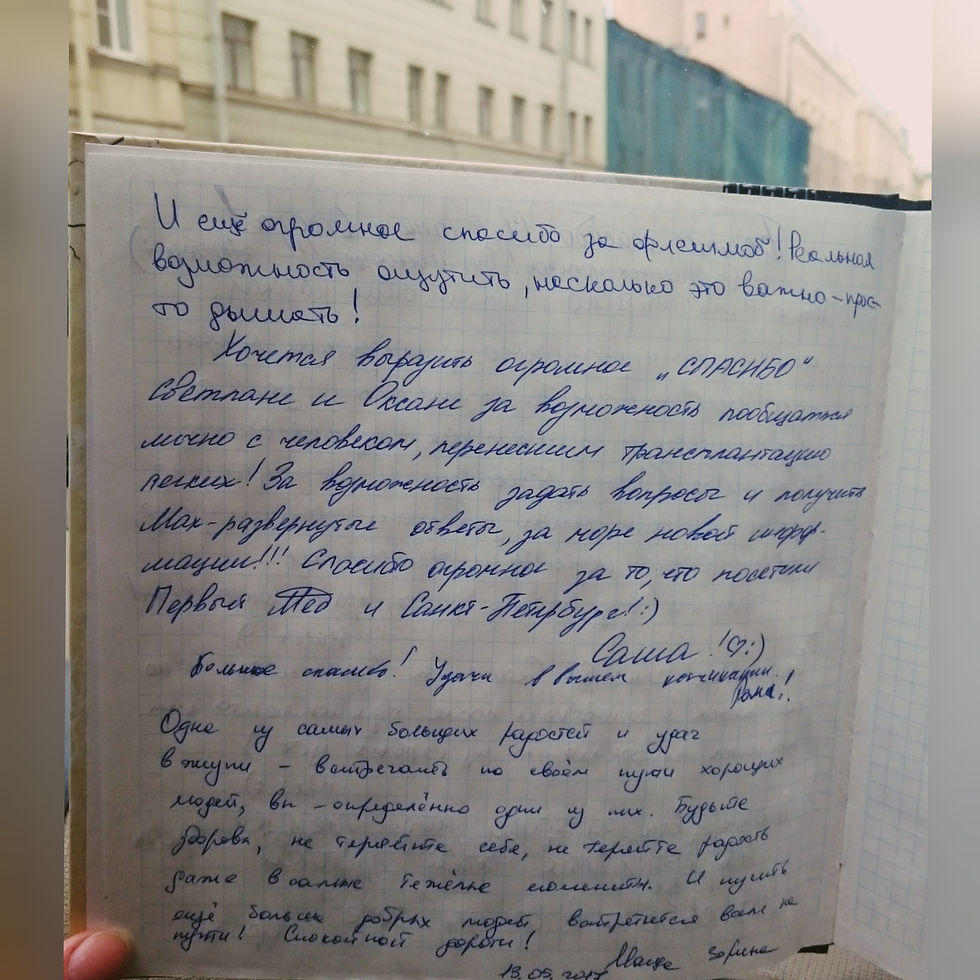 И ещё огромное спасибо за флешмоб! Реальная
возможность ощутить, насколько это важно - прос-
то дышать!
Хочется выразить огромное „СПАСИБО"
Светлане и Оксане за возможность пообщаться
лично с человеком, перенесшим трансплантацию
легких! За возможность задать вопросы и получить
Мах-развернутые ответы, за море новой инфор-
мации!!! Спасибо огромное за то, что посетили
Первый Мед и Санкт-Петербург! :)
Саша !♡:)
Большое спасибо! Удачи в вашем
Рома!
Одна из самых больших радостей и удач
в жизни - встречать на своём пути хороших
людей, вы - определённо одни из них. Будьте
здоровы, не теряйте себя, не теряйте радость
даже в самые тяжёлые моменты. И пусть
ещё больше добрых людей встретится вам на
пути! Спокойной дороги!
13.09.2017 Зорина